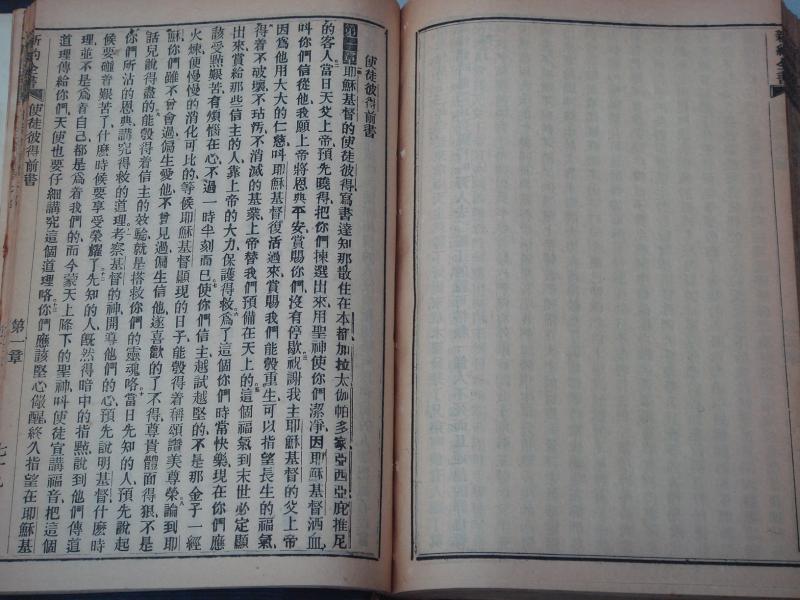 新約全書
使徒彼得前書
第一章耶穌基督的使徒彼得寫書達知那散住在本都加拉太伽帕多家亞西亞庇推尼
的客人、當日天父上帝預先曉得、把你們揀選出來、用聖神使你們潔凈、因耶穌基督洒血、
叫你們信從他、我願上帝將恩典平安賞賜你們、沒有停歇、祝謝我主耶穌基督的父上帝
因爲他用大大的仁慈、叫耶穌基督復活過來、賞賜我們能彀重生、可以指望長生的福氣、
得着不破壞、不玷污、不消滅的基業、上帝替我們預備在天上的、這個福氣、到末世必定顯
出來、賞給那些信主的人、靠上帝的大力、保護得救、爲了這個、你們時常快樂、現在你們應
該受點艱苦、有煩惱在心、不過一時半刻而已、使你們信主、越試越堅的、不是那金子一經
火煉、便慢慢的消化可比的、等候耶穌基督顯現的日子、能彀得着稱頌讚美尊榮、論到耶
穌、你們雖不曾會過、偏生愛他、不曾見過、偏生信他、遂喜歡的了不得、尊貴體面得狠、不是
話兒說得盡的、能彀得着信主的效驗、就是搭救你們的靈魂咯、當日先知的人、預先說起
你們所沾的恩典、講究得救的道理、考察基督的神、開導他們的心、預先說明基督什麽時
候要碰着艱苦了、什麽時候要享受榮耀了、先知的人、旣然得暗中的指點、說到他們傳道
理、並不是爲着自己、都是爲着我們的、而今蒙天上降下的聖神、叫使徒宣講福音、把這個
道理傳給你們、天使也要仔細講究這個道理咯、你們應該堅心儆醒、終久指望在耶穌基
新約全書 使徒彼得前書 第一章